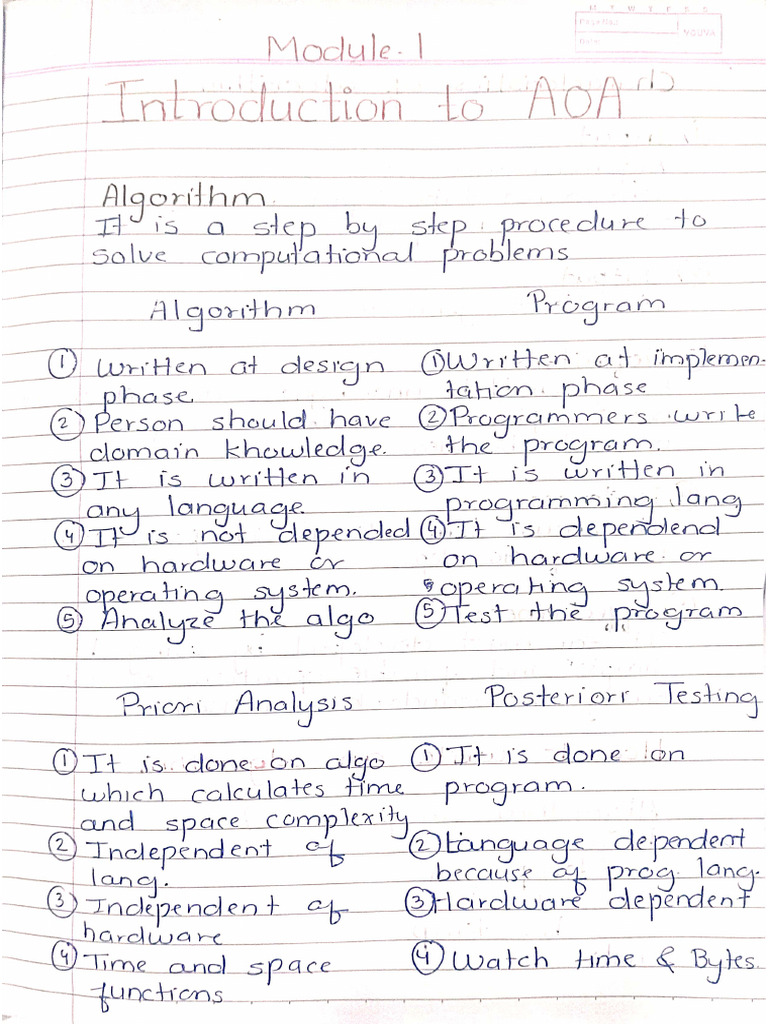 M T W T F S S
Page No.:
Date:
YOUVA
Module. 1
Introduction to AOA
Algorithm
It is a step by step procedure to
solve computational problems
Algorithm Program
① Written at design ① Written at implemen-
phase. tation phase
② Person should have ② Programmers write
domain knowledge. the program.
③ It is written in ③ It is written in
any language programming lang
④ It is not depended ④ It is dependend
on hardware or on hardware or
operating system. operating system.
⑤ Analyze the algo ⑤ Test the program
Priori Analysis Posteriori Testing
① It is done on algo ① It is done on
which calculates time program.
and space complexity
② Independent of ② Language dependent
lang. because of prog lang.
③ Independent of ③ Hardware dependent
hardware
④ Time and space ④ Watch time & Bytes.
functions